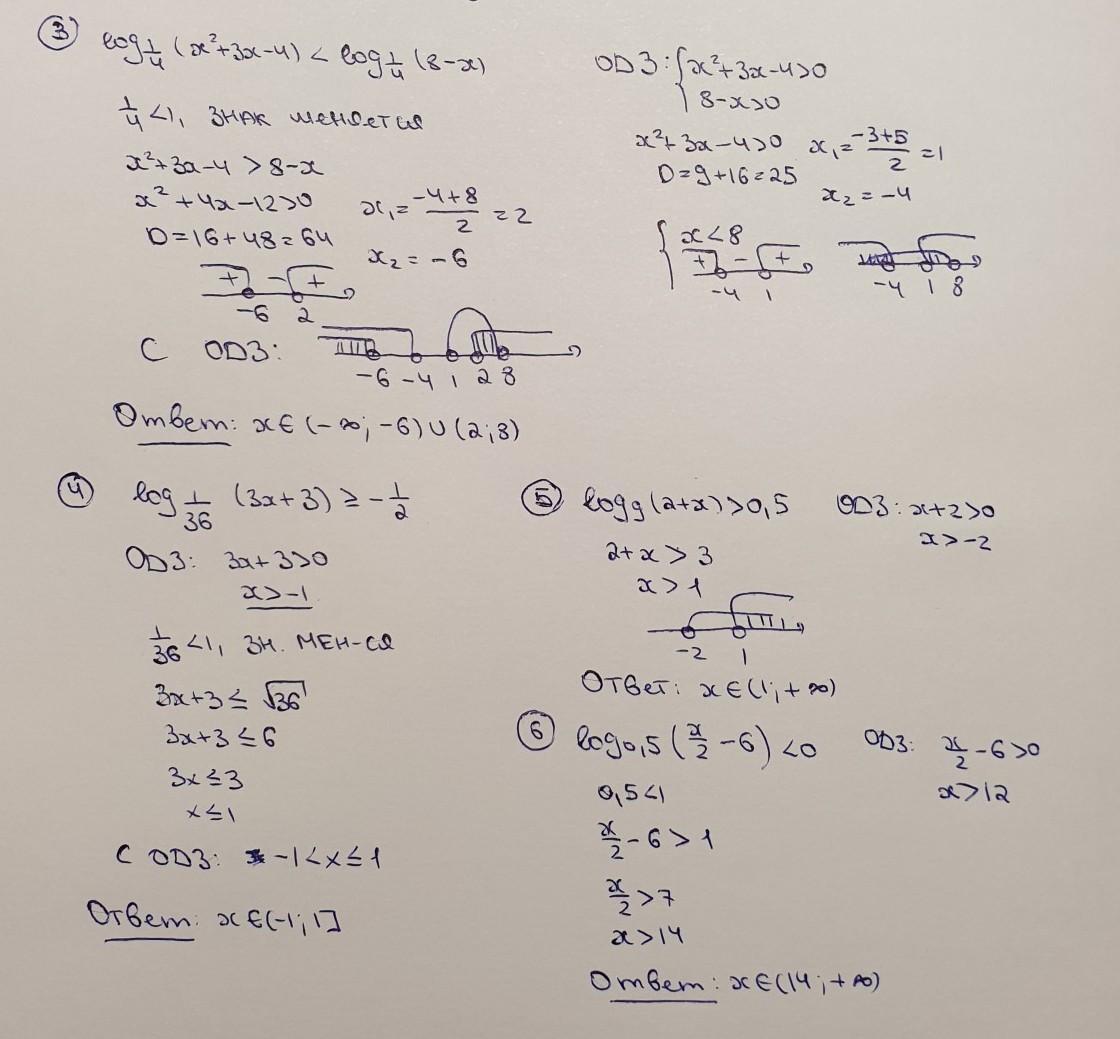 ③ log 1/4 (x²+3x-4) < log 1/4 (8-x)
ОДЗ: { x²+3x-4>0
8-x>0
1/4 <1, ЗНАК МЕНЯЕТСЯ
x²+3x-4>0 x₁= (-3+5)/2 =1
D=9+16=25
x₂=-4
x²+3x-4 > 8-x
x²+4x-12>0 x₁= (-4+8)/2 = 2
D=16+48=64
x₂ = -6
{ x<8
+ - +
-4 1
-4 1 8
+ - +
-6 2
С ОДЗ:
-6 -4 1 2 8
Ответ: x∈ (-∞; -6) ∪ (2; 8)
④ log 1/36 (3x+3) ≥ - 1/2
ОДЗ: 3x+3>0
x>-1
1/36 <1, ЗН. МЕН-СЯ
3x+3 ≤ √36
3x+3 ≤ 6
3x ≤ 3
x ≤ 1
С ОДЗ: -1<x≤1
Ответ: x∈(-1; 1]
⑤ log₉(2+x)>0,5 ОДЗ: x+2>0
x>-2
2+x > 3
x > 1
-2 1
Ответ: x∈(1; +∞)
⑥ log₀,₅ (x/2 -6) <0 ОДЗ: x/2 -6>0
x>12
0,5<1
x/2 -6 > 1
x/2 >7
x>14
Ответ: x∈(14; +∞)